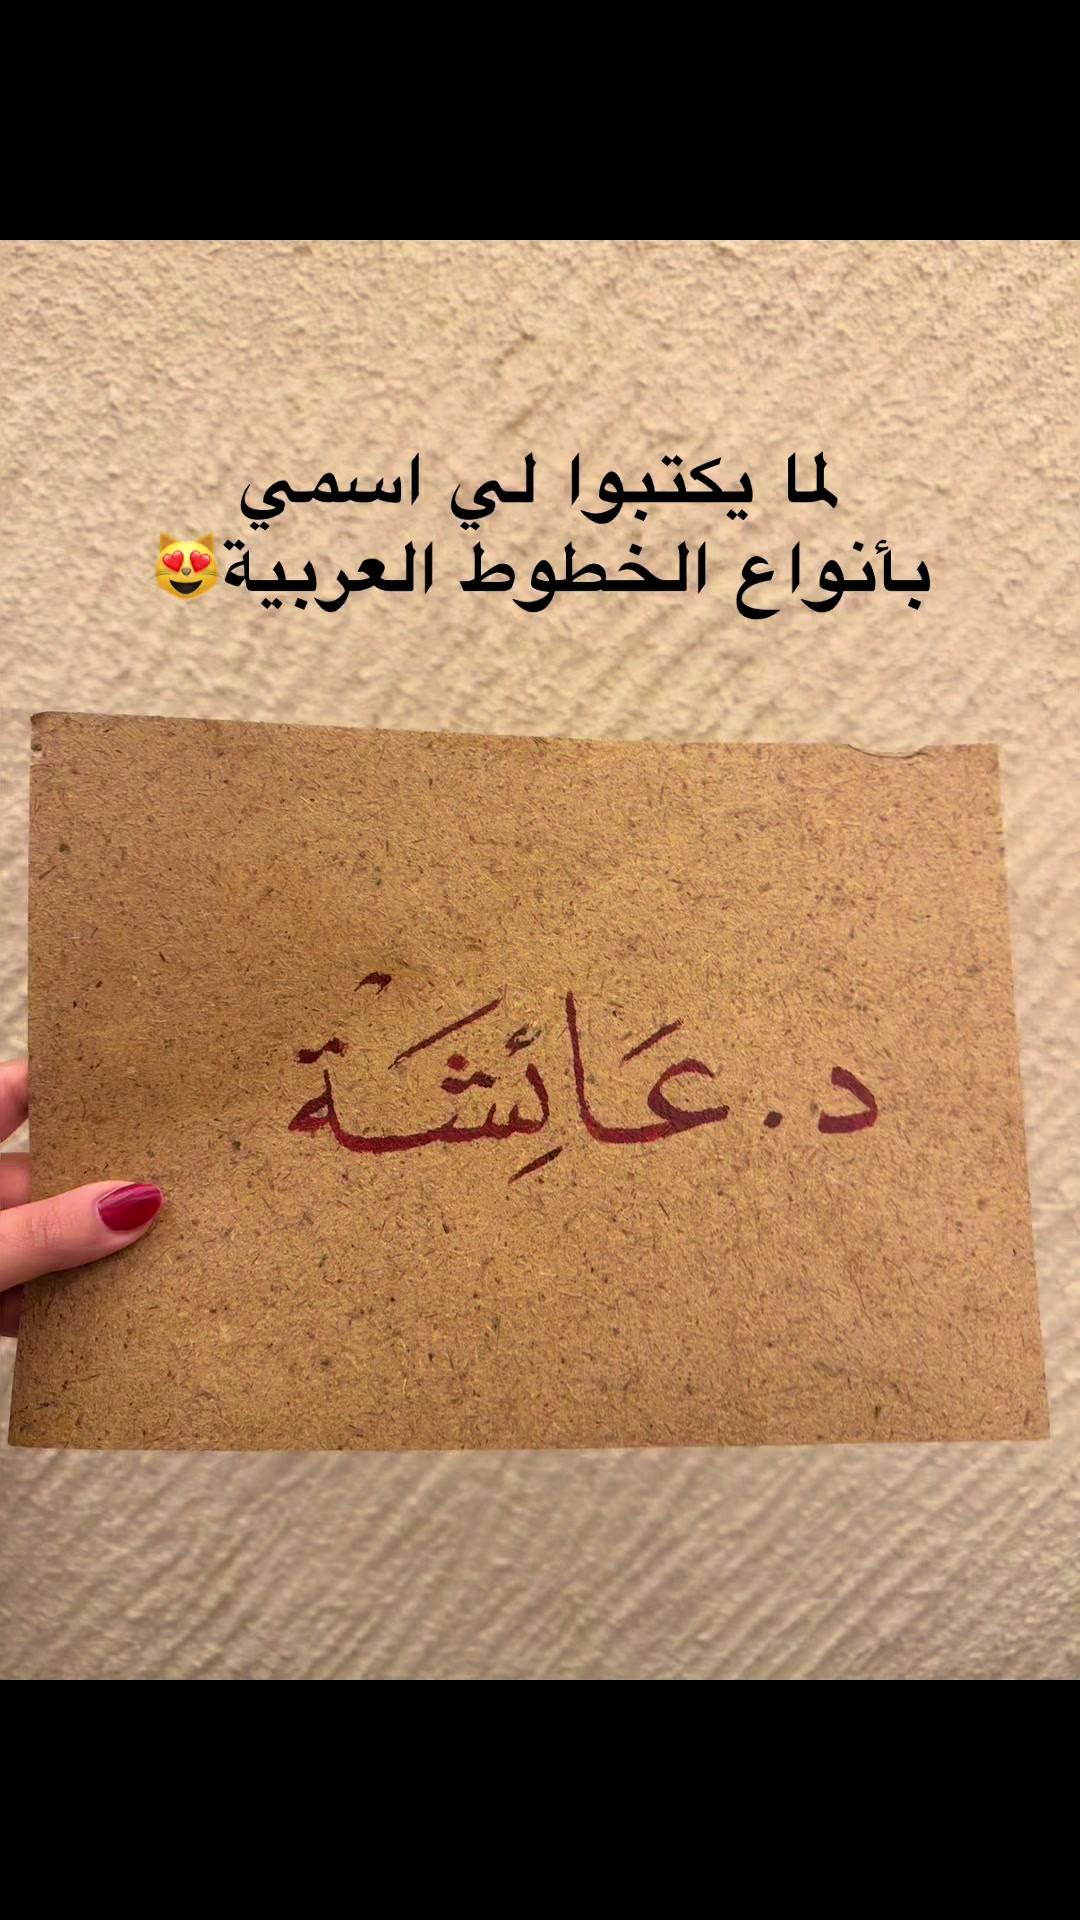 لما يكتبوا لي اسمي
بأنواع الخطوط العربية😻
د. عَائِشَةْ